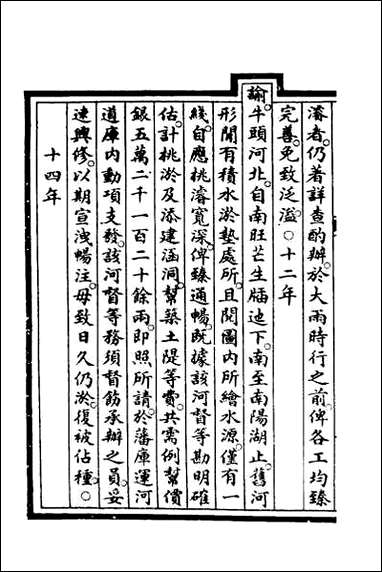 濬者。仍著詳查酌辦。於大雨時行之前。俾各工均臻
完善。免致泛溢。○十二年
諭。牛頭河北。自南旺芒生牐迤下。南至南陽湖止。舊河
形閒有積水淤墊處所。且閱圖內所繪水源。僅有一
綫。自應桃濬寬深。俾臻通暢。既據該河督等勘明確
估。計桃淤及添建涵洞。幫築土隄等費。共需例幫價
銀五萬二千一百二十餘兩。即照所請。於藩庫運河
道庫內動項支發。該河督等務須督筋承辦之員。妥
速興修。以期宣洩暢注。毋致日久仍淤。復被佔種。○
十四年